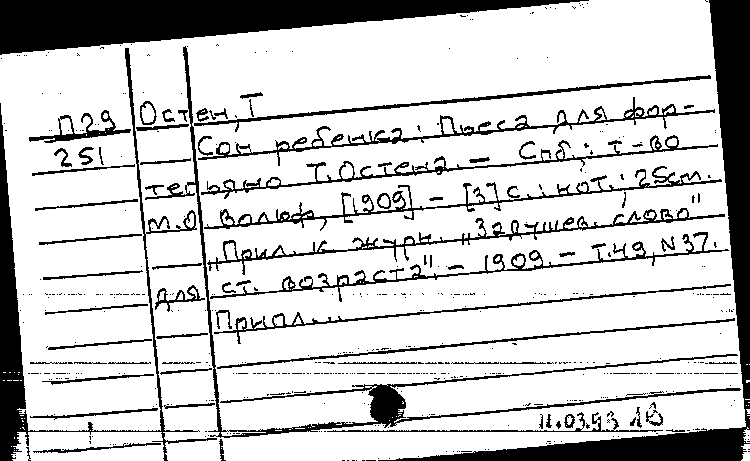 П29 Остен, Т
251 Сон ребенка: Пьеса для фор-
тепьяно Т. Остена. – Спб.: т-во
М.О. Вольф, [1909]. – [3] с.: нот.; 25см.
„Прил. к журн. „Задушев. слово"
для ст. возраста". – 1909. – Т.49, N37.
Припл...
11.03.93